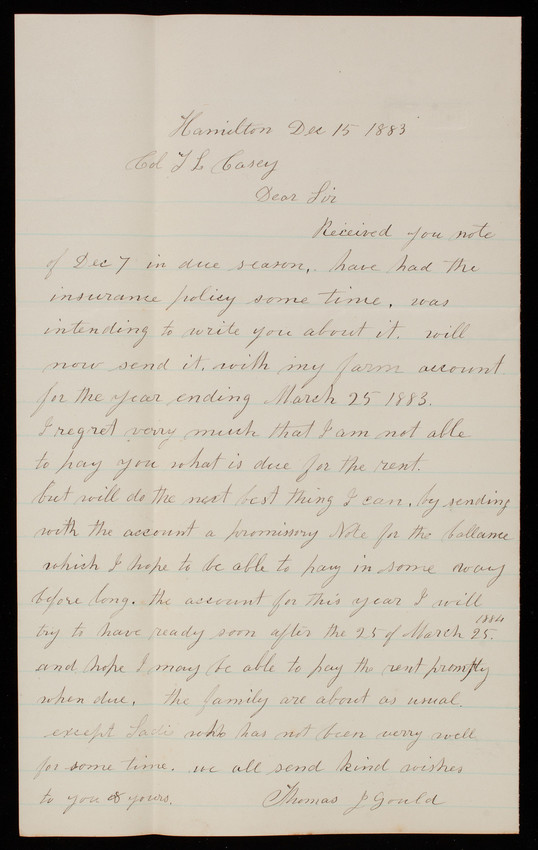 Hamilton Dec 15 1883
Col T L Casey
Dear Sir
Received you note
of Dec 7 in due season, have had the
insurance policy some time, was
intending to write you about it. will
now send it. with my farm account
for the year ending March 25 1883.
I regret verry much that I am not able
to pay you what is due for the rent.
but will do the next best thing I can, by sending
with the account a promissory Note for the ballance
which I hope to be able to pay in some way
before long. the account for this year I will
1884
try to have ready soon after the 25 of March 25.
and hope I may be able to pay the rent promptly
when due, the family are about as usual.
except Sadi who has not been verry well
for some time. we all send kind wishes
to you & yours. Thomas J Gould